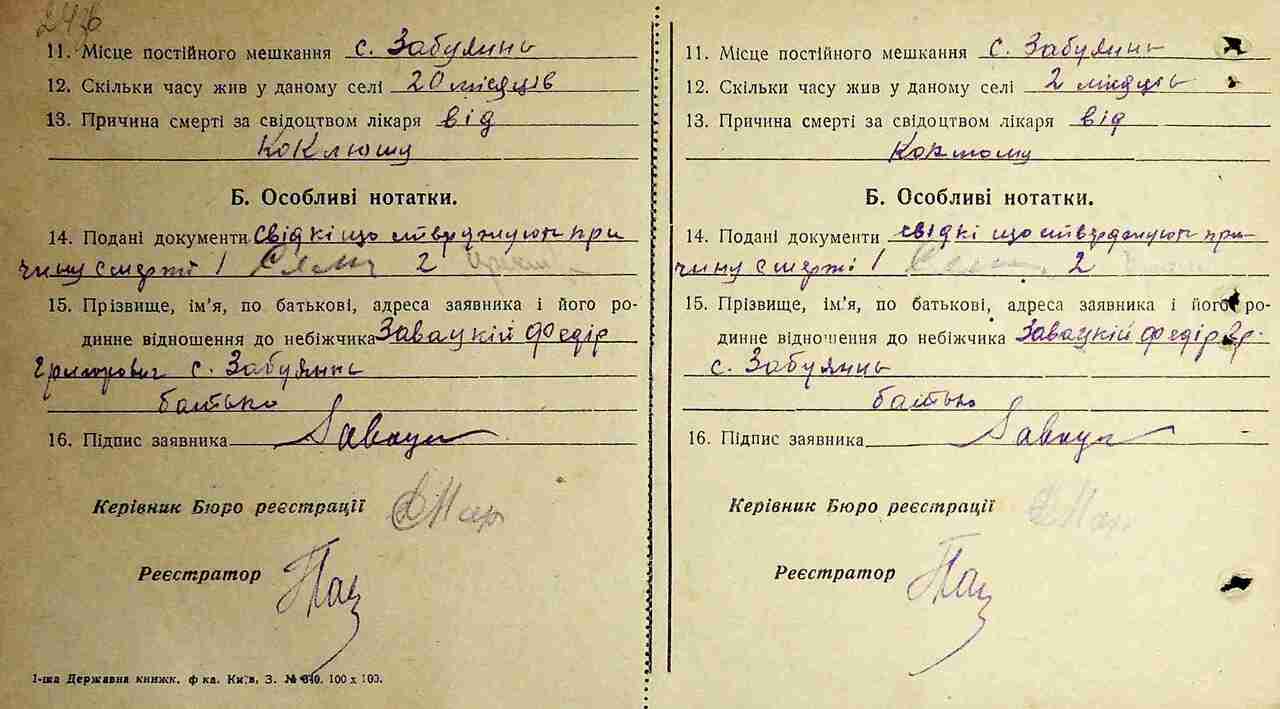 2436
11. Місце постійного мешкання с. Забуянь
12. Скільки часу жив у даному селі 20 місяців
13. Причина смерті за свідоцтвом лікаря від
Коклюшу
Б. Особливі нотатки.
14. Подані документи свідкі що стверджуют при
чину смерті 1 2
15. Прізвище, ім'я, по батькові, адреса заявника і його ро-
динне відношення до небіжчика Завацкій Федір
Григорович с. Забуянь
батько
16. Підпис заявника
Керівник Бюро реєстрації
Реєстратор
1-ша Державна книжк. ф-ка. Київ, З. № 340. 100 х 100.
11. Місце постійного мешкання с. Забуянь
12. Скільки часу жив у даному селі 2 місяць
13. Причина смерті за свідоцтвом лікаря від
Б. Особливі нотатки.
14. Подані документи свідкі що стверджуют при-
чину смерті 1 2
15. Прізвище, ім'я, по батькові, адреса заявника і його ро-
динне відношення до небіжчика Завацкій Федір Гр.
с. Забуянь
батько
16. Підпис заявника
Керівник Бюро реєстрації
Реєстратор